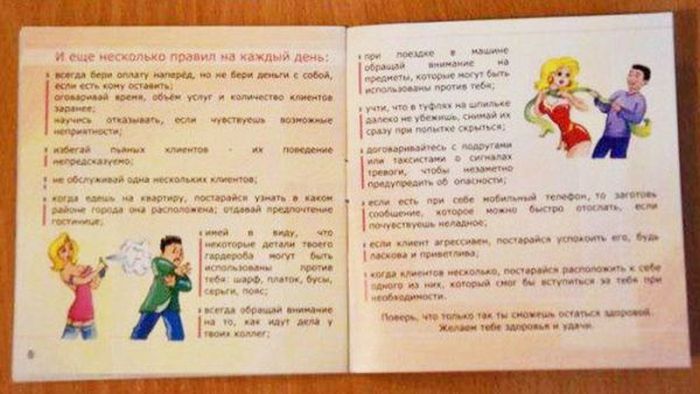 И еще несколько правил на каждый день:
всегда бери оплату наперёд, но не бери деньги с собой,
если есть кому оставить;
оговаривай время, объём услуг и количество клиентов
заранее;
научись отказывать, если чувствуешь возможные
неприятности;
избегай пьяных клиентов - их поведение
непредсказуемо;
не обслуживай одна нескольких клиентов;
когда едешь на квартиру, постарайся узнать в каком
районе города она расположена; отдавай предпочтение
гостинице;
имей в виду, что
некоторые детали твоего
гардероба могут быть
использованы против
тебя: шарф, платок, бусы,
серьги, пояс;
всегда обращай внимание
на то, как идут дела у
твоих коллег;
8
при поездке в машине
обращай внимание на
предметы, которые могут быть
использованы против тебя;
учти, что в туфлях на шпильке
далеко не убежишь, снимай их
сразу при попытке скрыться;
договаривайтесь с подругами
или таксистами о сигналах
тревоги, чтобы незаметно
предупредить об опасности;
если есть при себе мобильный телефон, то заготовь
сообщение, которое можно быстро отослать, если
почувствуешь неладное;
если клиент агрессивен, постарайся успокоить его, будь
ласкова и приветлива;
когда клиентов несколько, постарайся расположить к себе
одного из них, который смог бы вступиться за тебя при
необходимости.
Поверь, что только так ты сможешь остаться здоровой.
Желаем тебе здоровья и удачи.